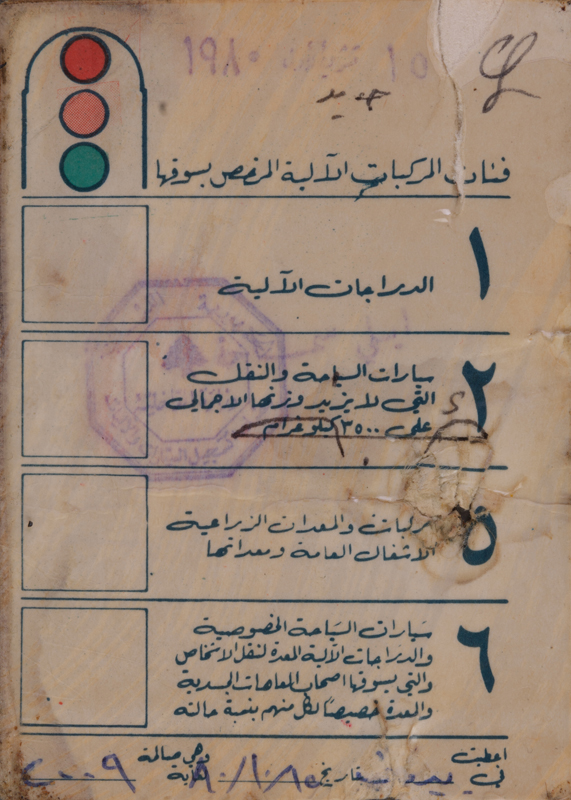 ١٥ ١٩٨٠
جديد
فئات المركبات الآلية المرخص بسوقها
١
الدراجات الآلية
٢
سيارات السياحة والنقل
التي لا يزيد وزنها الاجمالي
على ٣٥٠٠ كيلوغرام
٥
مركبات والمعدات الزراعية
الاشغال العامة ومعداتها
٦
سيارات السياحة الخصوصية
والدراجات الآلية المعدة لنقل الاشخاص
والتي يسوقها اصحاب العاهات الجسدية
والمعدة خصيصاً لكل منهم بنسبة حالته
اعطيت وهي صالحة
في بيروت تاريخ لغاية ٢٠٠٩